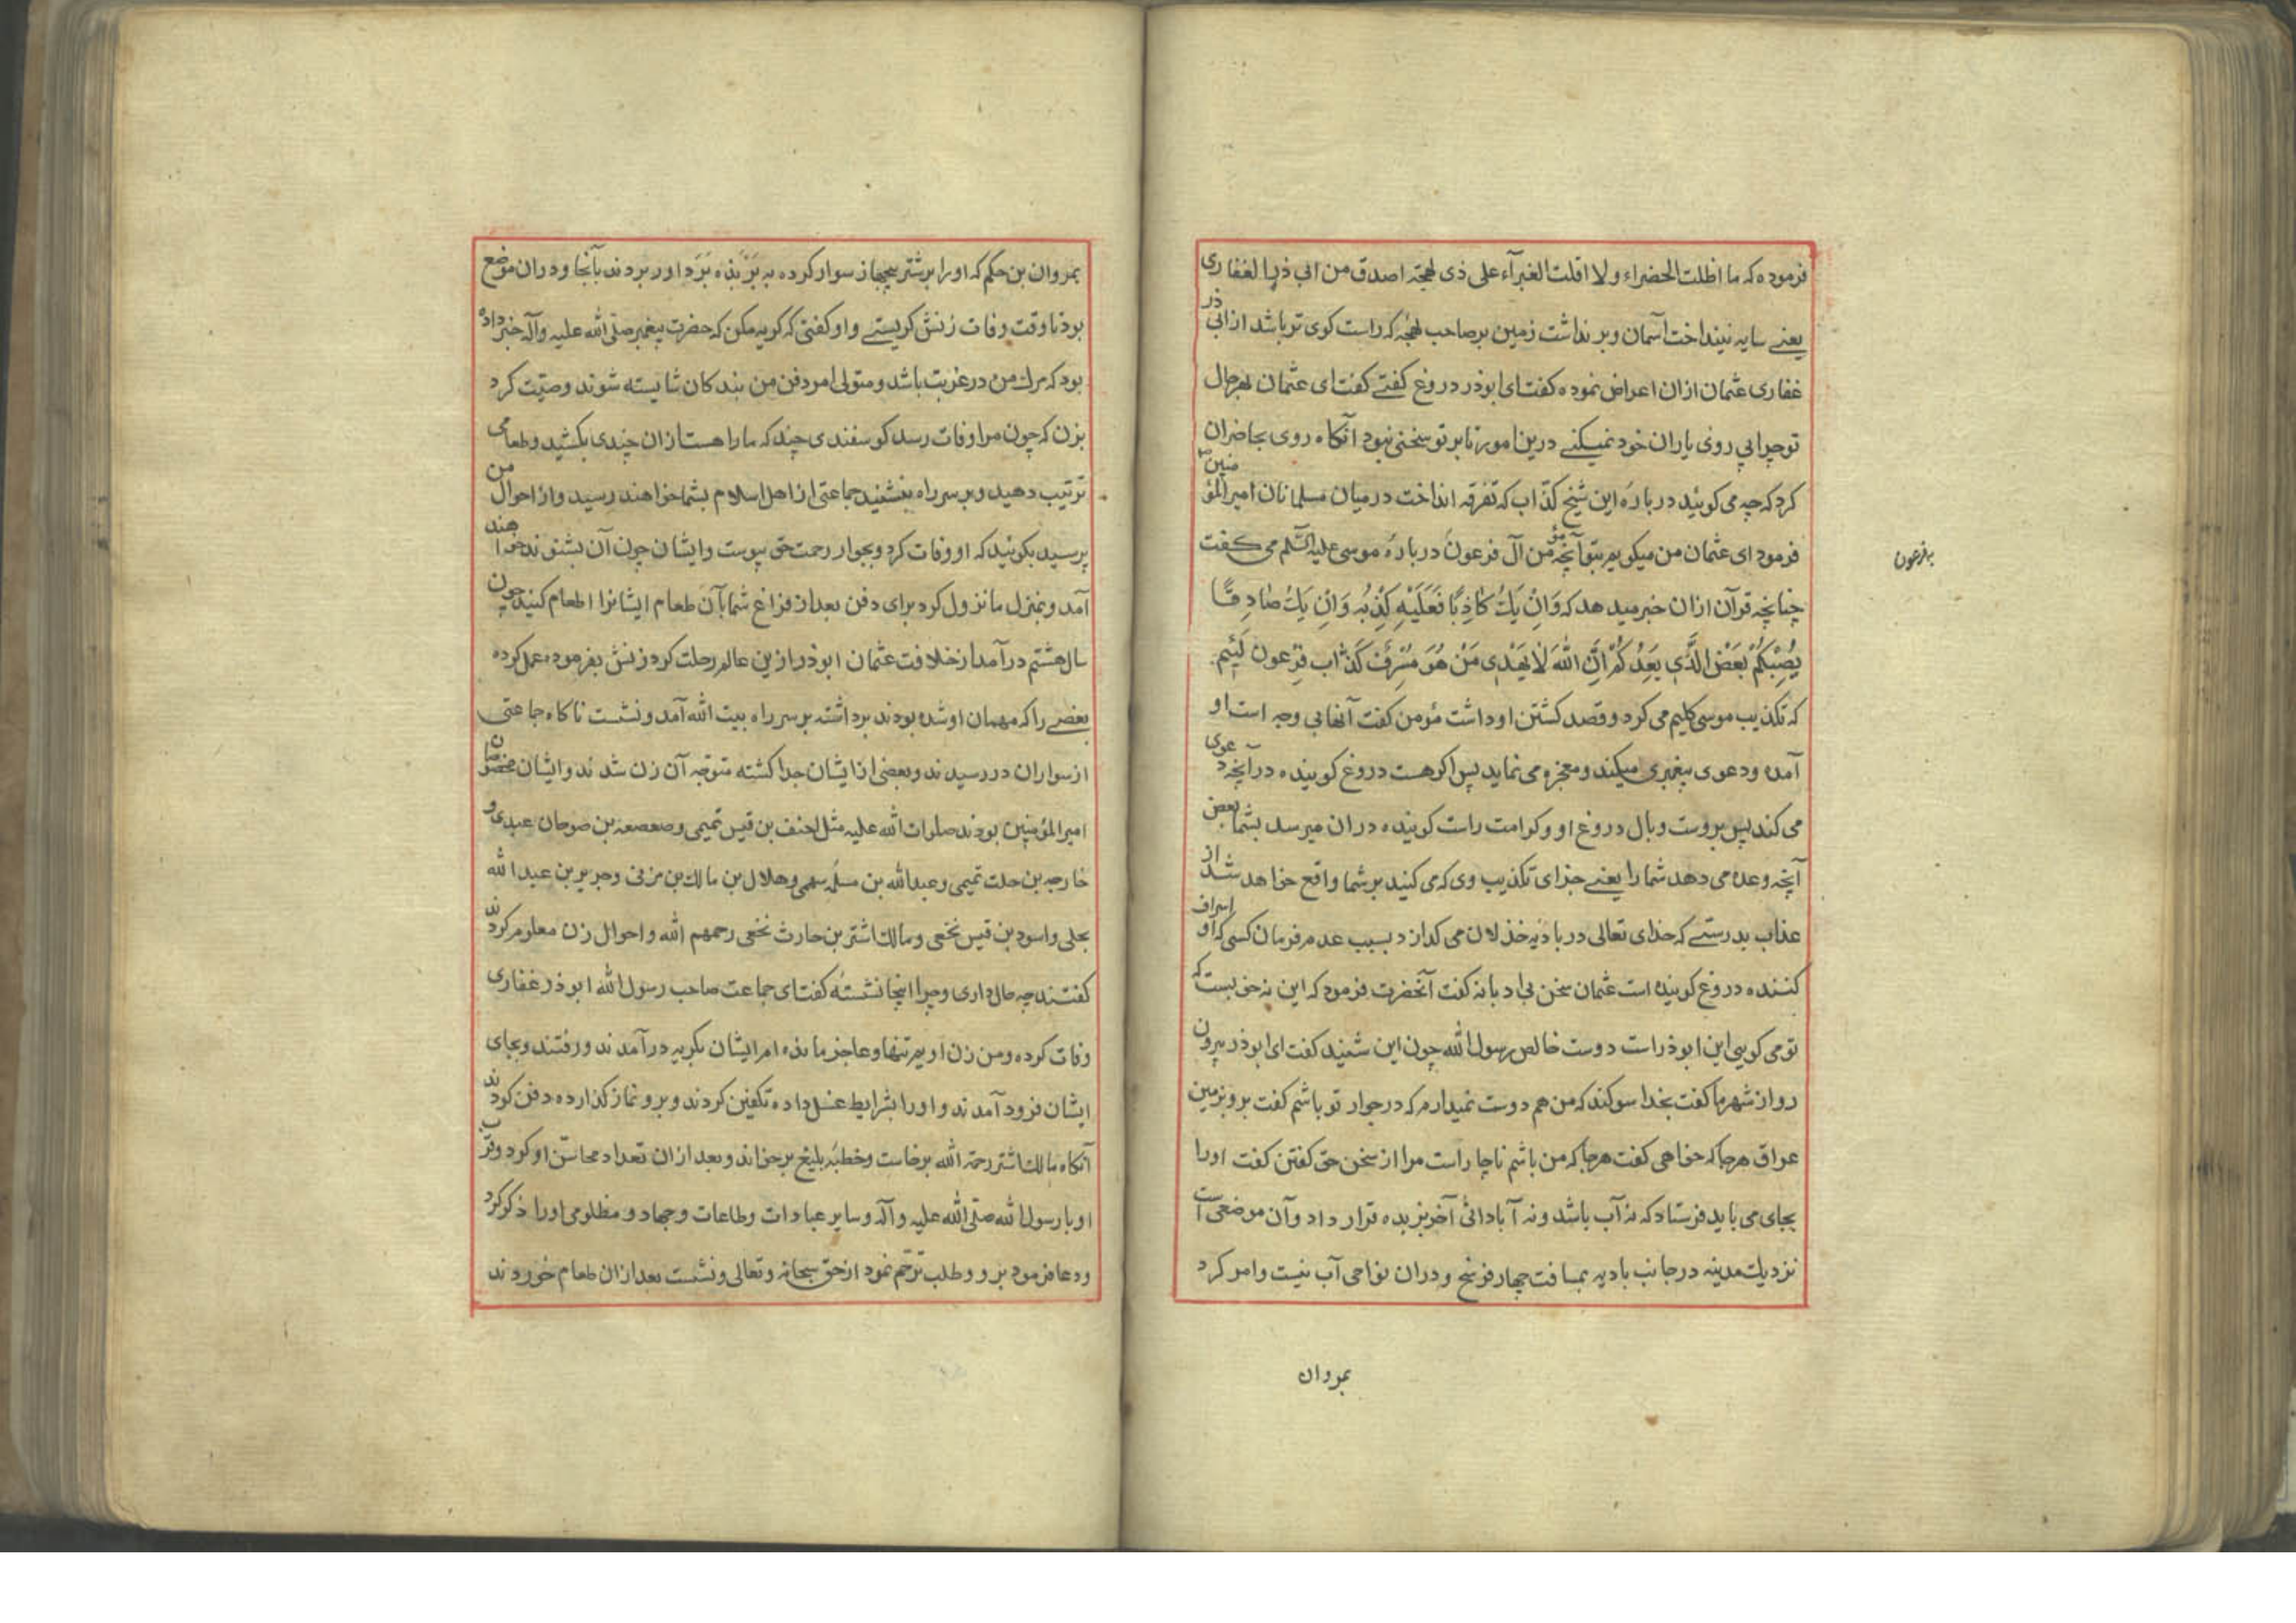 فرموده که ما اظلت الخضراء ولا اقلت الغبرآء علی ذی لهجة اصدق من ابی ذر الغفاری
یعنے سایه نینداخت آسمان وبرنداشت زمین بر صاحب لهجهٔ که راست کوی تر باشد از ابی ذر
غفاری عثمان ازان اعراض نموده کفت ای ابوذر دروغ کفتے کفت ای عثمان بهرحال
تو چرا پی روی یاران خود نمیکنے درین امور تا بر تو سخنی نبود آنکاه روی بحاضران
کرد که چه می کوئید در بارهٔ این شیخ کذّاب که تفرقه انداخت درمیان مسلمانان امیرالمؤمنین
فرمود ای عثمان من میکویم بتو آنچه مؤمن آل فرعون دربارهٔ موسی علیه السّلم می کفت
بفرعون
چنانچه قرآن ازان خبر میدهد که وَاِنْ یَكُ كَاذِبًا فَعَلَیْهِ كَذِبُهُ وَاِنْ یَكُ صَادِقًا
یُصِبْكُمْ بَعْضُ الَّذِی یَعِدُكُمْ اِنَّ اللّٰهَ لَا یَهْدِی مَنْ هُوَ مُسْرِفٌ كَذَّاب فرعون لئیم
که تکذیب موسی کلیم می کرد وقصد کشتن او داشت مؤمن کفت آنها بی وجه است او
آمده ودعوی پیغمبری میکند ومعجزه می نماید پس اکر هست دروغ کوینده در آنچه دعوی
می کند پس بروست وبال دروغ او وکر است راست کوینده دران میرسد بشما بعض
آنچه وعده می دهد شما را یعنے جزای تکذیب وی که می کنید بر شما واقع خواهد شد از
عذاب بدرستے که خدای تعالی در بادیه خذلان می کذارد بسبب عدم فرمان کسی که او اسراف
کننده دروغ کوینده است عثمان سخن بی ادبانه کفت آنحضرت فرمود که این نه خوبست که
تو می کویی این ابوذر است دوست خالص رسول الله چون این شنید کفت ای ابوذر بیرون
رو از شهر ما کفت بخدا سوکند که من هم دوست نمیدارم که در جوار تو باشم کفت برو بزمین
عراق هرجا که خواهی کفت هرجا که من باشم ناچار است مرا از سخن حق کفتن کفت اورا
بجای می باید فرستاد که نه آب باشد ونه آبادانی آخر بربده قرار داد وآن موضعی است
نزدیك مدینه در جانب بادیه بمسافت چهار فرسخ ودران نواحی آب نیست وامر کرد
بمروان
بمروان بن حکم که اورا بر شتر بیجهاز سوار کرده به ربذه برد اورا بردند بآنجا ودران موضع
بود تا وقت وفات زنش کریستے واو کفتی که کریه مکن که حضرت پیغمبر صلّی الله علیه وآله خبر داده
بود که مرك من در غربت باشد ومتولی امور دفن من بندکان شایسته شوند وصیّت کرد
بزن که چون مرا وفات رسد کوسفندی چند که ما را هست ازان چندی بکشید وطعامی
ترتیب دهید وبر سر راه بنشینید جماعتی از اهل اسلام بشما خواهند رسید واز احوال من
پرسید بکوئید که او وفات کرد وبجوار رحمت حق پیوست وایشان چون آن بشنوند خواهند
آمد وبمنزل ما نزول کرد برای دفن بعد از فراغ شما بآن طعام ایشانرا اطعام کنید چون
سال هشتم درآمد از خلافت عثمان ابوذر ازین عالم رحلت کرد زنش بفرموده عمل کرده
بعضے را که مهمان او شده بودند برداشته بر سر راه بیت الله آمد ونشست ناکاه جماعتی
از سواران دررسیدند وبعضی از ایشان جدا کشته متوجه آن زن شدند وایشان مخصوصان
امیرالمؤمنین بودند صلوات الله علیه مثل احنف بن قیس تمیمی وصعصعه بن صوحان عبدی و
خارجه بن صلت تمیمی وعبدالله بن مسلمه سهمی وهلال بن مالك بن مزنی وجریر بن عبدالله
بجلی واسود بن قیس نخعی ومالك اشتر بن حارث نخعی رحمهم الله واحوال زن معلوم کردند
کفتند چه حال داری وچرا اینجا نشستهٔ کفت ای جماعت صاحب رسول الله ابوذر غفاری
وفات کرده ومن زن اویم تنها وعاجز مانده ام ایشان بکریه درآمدند ورفتند وبجای
ایشان فرود آمدند واورا بشرایط غسل داده تکفین کردند وبرو نماز کذارده دفن کردند
آنکاه مالك اشتر رحمه الله برخاست وخطبهٔ بلیغ برخواند وبعد ازان تعداد محاسن او کرد وقرب
او با رسول الله صلّی الله علیه وآله وسایر عبادات وطاعات وجهاد ومظلومی اورا ذکر کرد
ودعا فرمود برو وطلب ترحّم نمود از حق سبحانه وتعالی ونشست بعد ازان طعام خوردند